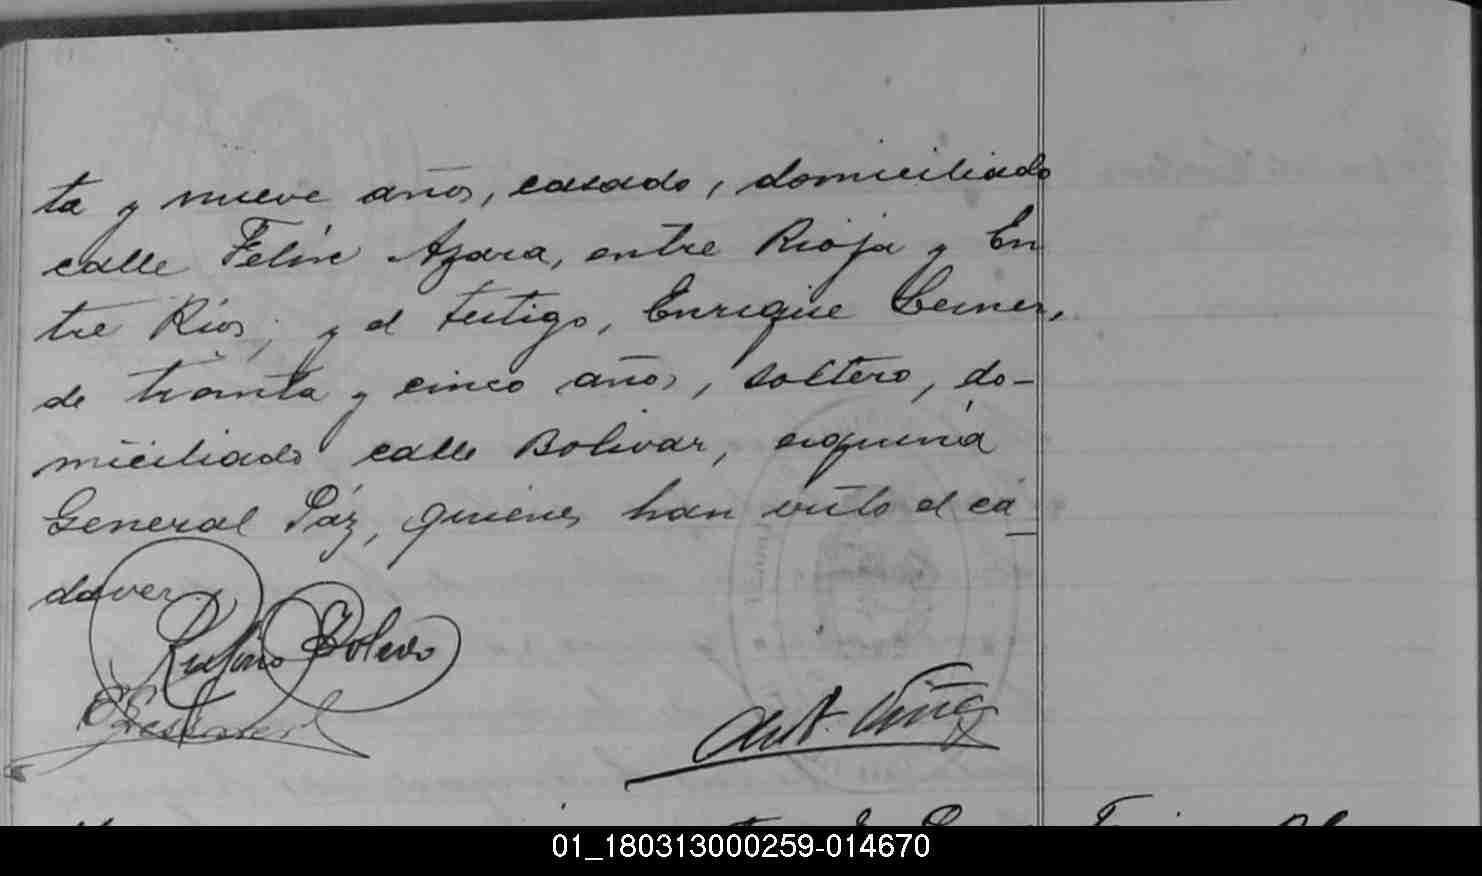 ta y nueve años, casado, domiciliado
calle Felix Azara, entre Rioja y En
tre Rios; y el testigo, Enrique
de trainta y cinco años, soltero, do-
miciliado calle Bolivar, esquina
General Páz, quienes han visto el ca
daver.
Rufino Toledo
01_180313000259-014670